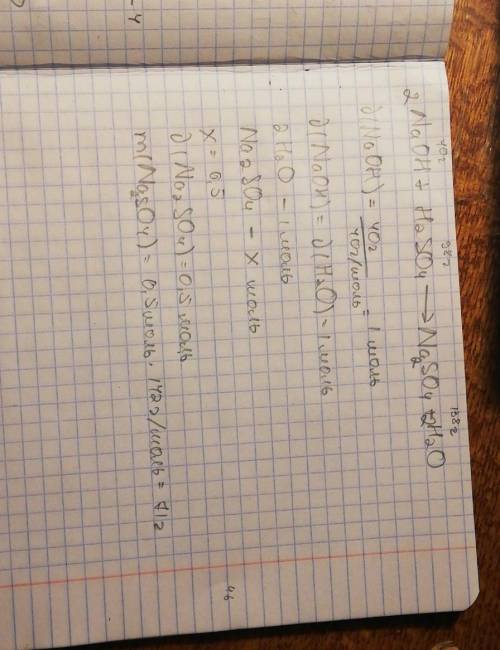 40г 98г 138г
2NaOH + H₂SO₄ ⟶ Na₂SO₄ + 2H₂O
ν(NaOH) = 40г / 40г/моль = 1 моль
ν(NaOH) = ν(H₂O) = 1 моль
2H₂O – 1 моль
Na₂SO₄ – x моль
x = 0,5
ν(Na₂SO₄) = 0,5 моль
m(Na₂SO₄) = 0,5 моль · 142г/моль = 71г
46
-4